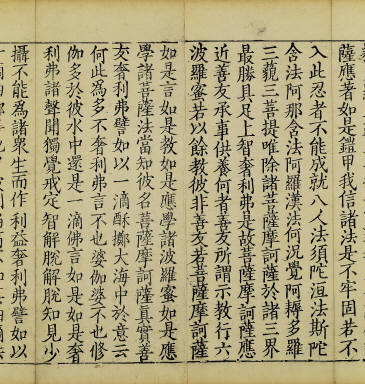 薩應著如是鎧甲我信諸法是不牢固若不
入此忍者不能成就八人法須陀洹法斯陀
含法阿那含法阿羅漢法何況覺阿耨多羅
三藐三菩提唯除諸菩薩摩訶薩於諸三界
最勝具足上智奢利弗是故菩薩摩訶薩應
近善友承事供養何者善友所謂示教行六
波羅蜜若以餘教彼非善友若菩薩摩訶薩
如是言如是教如是應學諸波羅蜜如是應
學諸菩薩法當知彼名菩薩摩訶薩真實善
友奢利弗譬如以一滴酥擲大海中於意云
何此為多不奢利弗言不也婆伽婆不也修
伽多於彼水中還是一滴佛言如是如是奢
利弗諸聲聞獨覺戒定智解脫解脫知見少
攝不能為諸眾生而作利益奢利弗譬如以